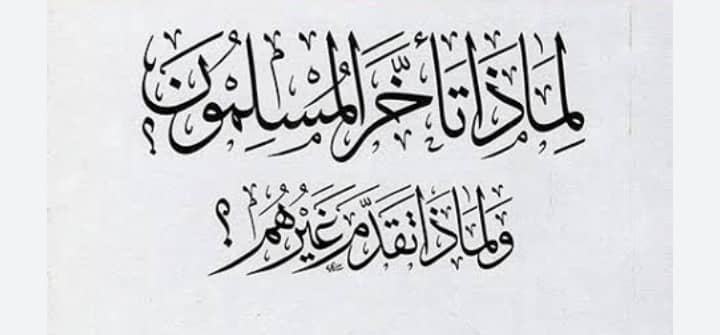 لِمَاذَا تَأَخَّرَ المُسْلِمُونَ؟
وَلِمَاذَا تَقَدَّمَ غَيْرُهُمْ؟